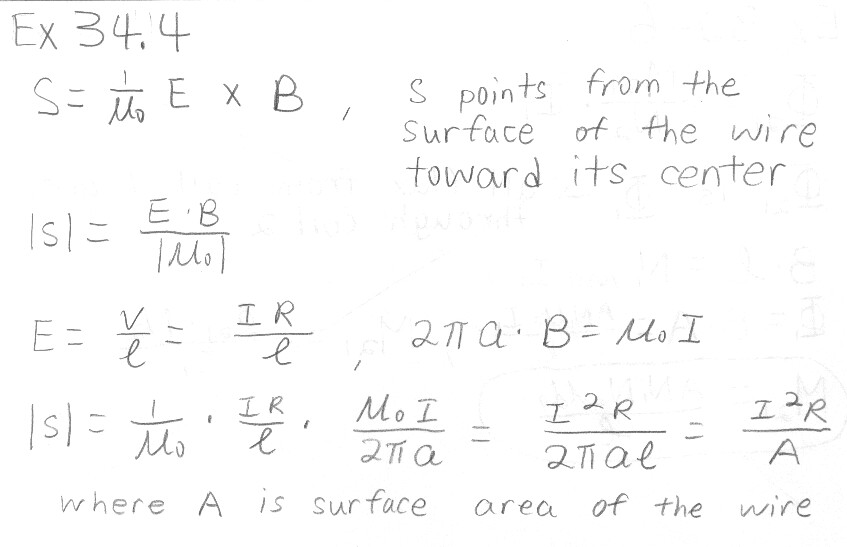 Ex 34.4
S = 1/μ₀ E × B , S points from the
surface of the wire
toward its center
|S| = E·B/|μ₀|
E = V/ℓ = IR/ℓ , 2πa·B = μ₀I
|S| = 1/μ₀ · IR/ℓ · μ₀I/2πa = I²R/2πaℓ = I²R/A
where A is surface area of the wire